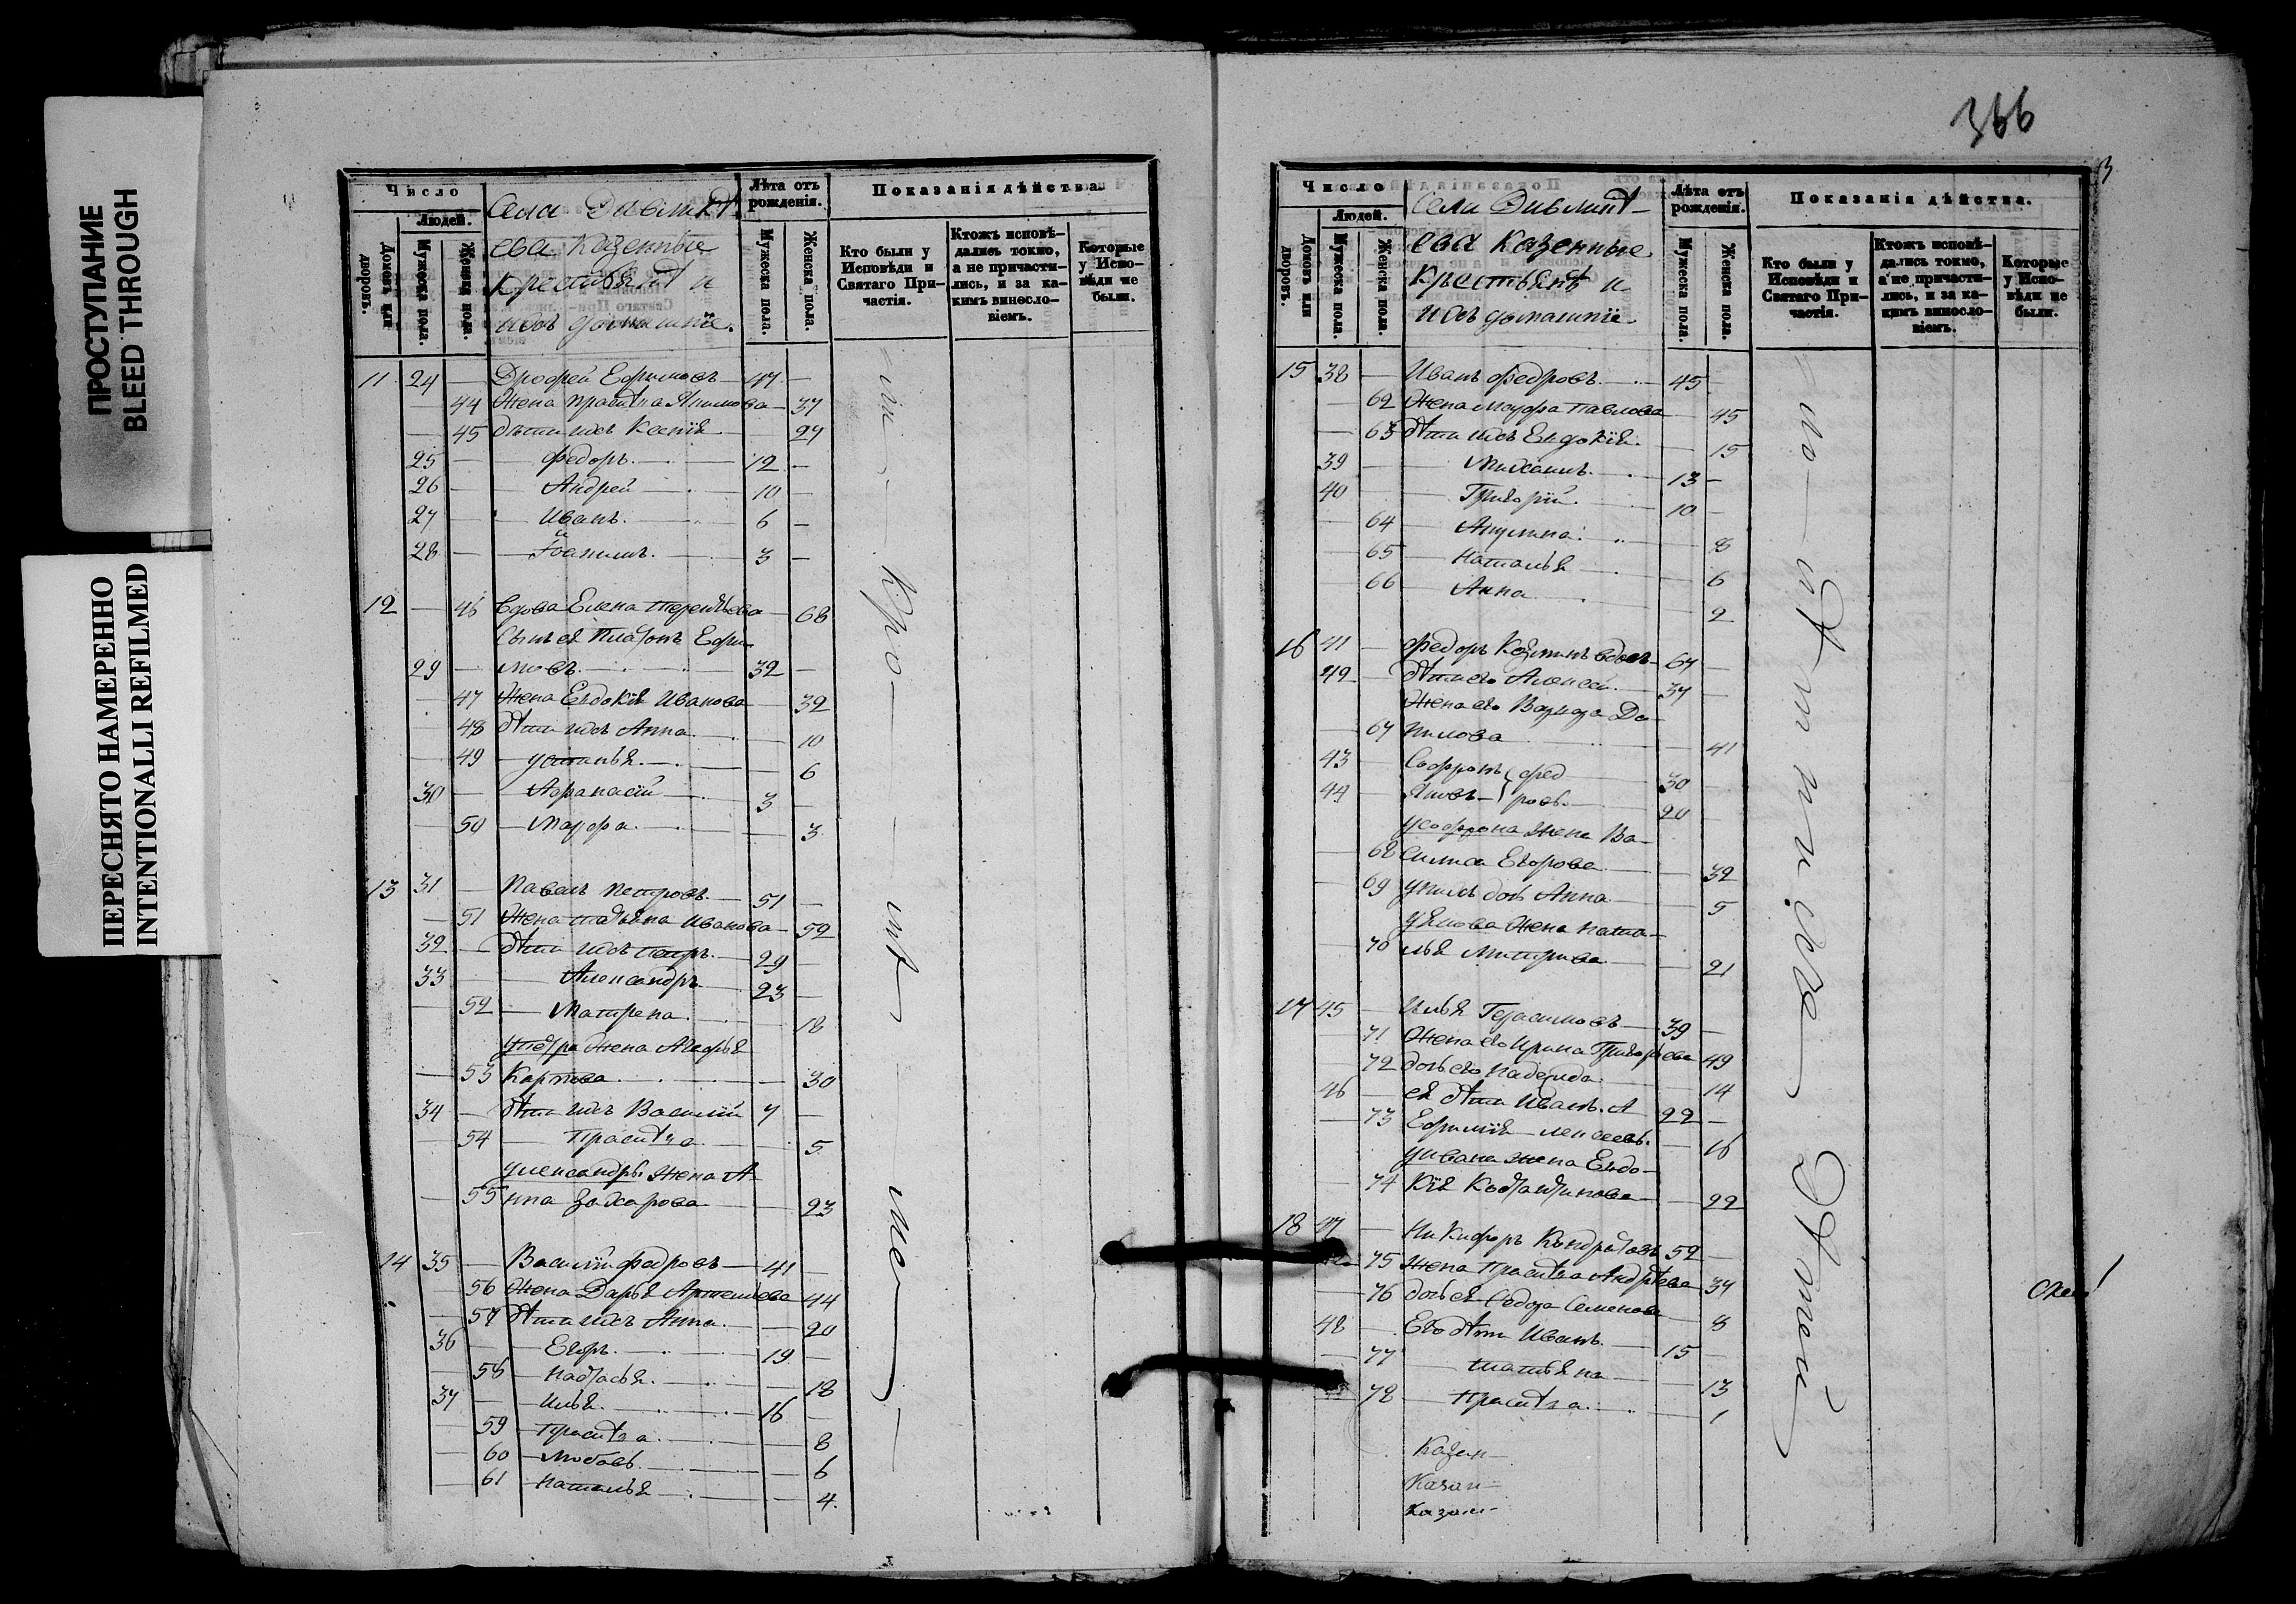 ПРОСТУПАНИЕ
BLEED THROUGH
ПЕРЕСНЯТО НАМЕРЕННО
INTENTIONALLI REFILMED
Число
Людей.
Домовъ или дворовъ.
Мужеска пола.
Женска пола.
Села
ева Казенные
Крестьянѣ и
ихъ домашніе.
Лѣта отъ рожденія.
Мужеска пола.
Женска пола.
Показанія дѣйства.
Кто были у Исповѣди и Святаго Причастія.
Ктожъ исповѣдались токмо, а не причастились, и за какимъ винословіемъ.
Которые у Исповѣди не были.
11 24 — Дрофей Ефимовъ — 47 —
44 Жена Праскѣва Якимова — 37
45 дѣти ихъ Ксенія 24
25 — Федоръ — 12 —
26 — Андрей — 10 —
27 — Иванъ — 6 —
28 — Іоакимъ — 3 —
12 — 46 Вдова Елена Терентьева — 68
Сынъ ея Платонъ Ефи-
29 — мовъ — 32 —
47 Жена Евдокія Иванова — 32
48 дѣти ихъ Анна — 10
49 — Устинья — 6
30 — Афанасій — 3 —
50 — Марфа — 3
13 31 — Павелъ Петровъ — 51 —
51 Жена Татьяна Иванова — 52
32 — дѣти ихъ Петръ — 29 —
33 — Александръ — 23 —
52 — Матрена — 18
У Петра жена Агафья
53 Карпова — 30
34 — дѣти ихъ Василій 7 —
54 — Праскѣва — 5
У Александры жена А-
55 нна Захарова — 23
14 35 — Василій Федровъ — 41 —
56 Жена Дарья Артемьева 44
57 дѣти ихъ Анна — 20
36 — Егоръ — 19 —
58 — Настасья — 18
37 — Илья — 16 —
59 — Праскѣва — 8
60 — Любовь — 6
61 — Наталья — 4.
366
3
Число
Людей.
Домовъ или дворовъ.
Мужеска пола.
Женска пола.
Села
ева Казенные
Крестьянѣ и
ихъ домашніе.
Лѣта отъ рожденія.
Мужеска пола.
Женска пола.
Показанія дѣйства.
Кто были у Исповѣди и Святаго Причастія.
Ктожъ исповѣдались токмо, а не причастились, и за какимъ винословіемъ.
Которые у Исповѣди не были.
15 38 — Иванъ Федровъ — 45 —
62 Жена Марфа Павлова — 45
63 дѣти ихъ Евдокія — 15
39 — Михаилъ — 13 —
40 — Григорій — 10 —
64 — Акулина — 8
65 — Наталья — 6
66 — Анна — 2
16 41 — Федоръ Козминъ вдовъ — 67 —
42 — дѣти его Алексѣй — 37 —
Жена его Варвара Да-
67 нилова — 41
43 — Софронъ Фед 30 —
44 — Яковъ ровъ 20 —
У Софрона жена Ва-
68 силиса Егорова — 32
69 у нихъ дочь Анна — 5
У Якова жена Ната-
70 лья Митрива — 21
17 45 — Илья Герасимовъ — 39 —
71 Жена его Ирина Григорьева 49
72 дочь его Надежда — 14
46 — ея дѣти Иванъ А 22 —
73 Ефимія лексеевы — 16
У Ивана жена Евдо-
74 кія Костантинова — 22
18 47 — Никифоръ Кондратовъ 52 —
75 Жена Праскѣва Андрѣева 37
76 дочь ея Федора Семенова — 8
48 — Его дѣти Иванъ — 15 —
77 — Татьяна — 13
78 — Праскѣва — 1
Казен
Казан
Казан